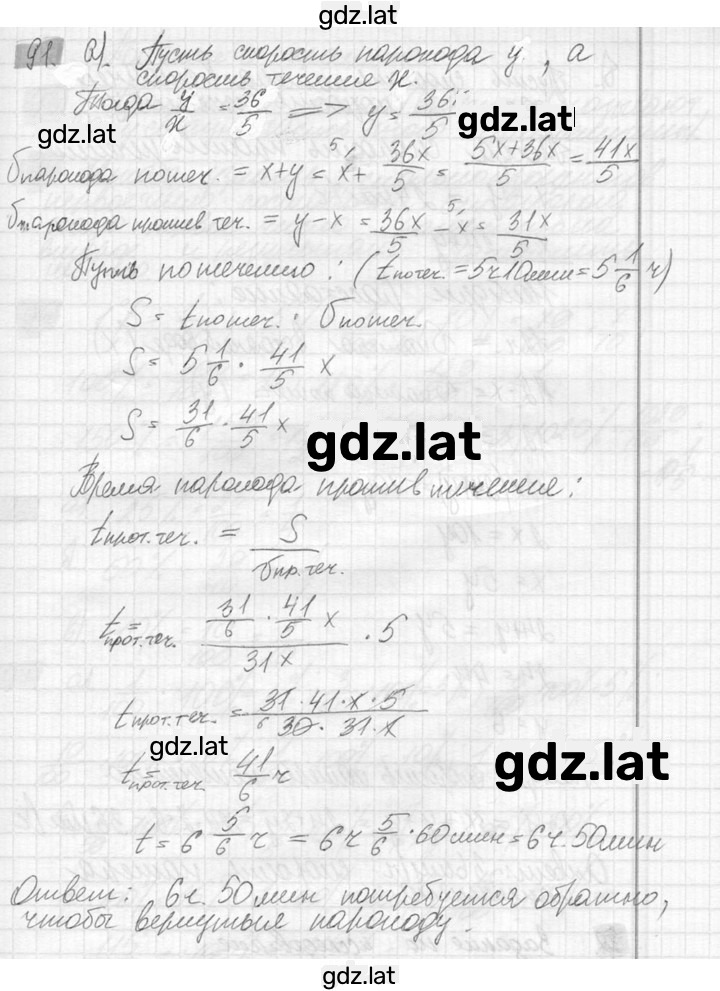 gdz.lat
91. а). Пусть скорость парохода y, а
скорость течение x.
Тогда y/x = 36/5 => y = 36x/5
gdz.lat
gdz.lat
υпарохода потеч. = x+y = x + 36x/5 = 5x+36x/5 = 41x/5
υпарохода против теч. = y-x = 36x/5 - x = 31x/5
Путь по течению: (tпотеч. = 5ч10мин = 5 1/6 ч)
S = tпотеч. · υпотеч.
S = 5 1/6 · 41/5 x
S = 31/6 · 41/5 x
gdz.lat
Время парохода против течение:
tпрот.теч. = S/υпр.теч.
tпрот.теч. = 31/6 · 41/5 x / 31x · 5
tпрот.теч. = 31·41·x·5 / 30·31·x 6
gdz.lat
gdz.lat
tпрот.теч. = 41/6 ч
t = 6 5/6 ч = 6ч 5/6 · 60мин = 6ч.50мин
Ответ: 6ч.50мин потребуется обратно,
чтобы вернуться пароходу.
gdz.lat